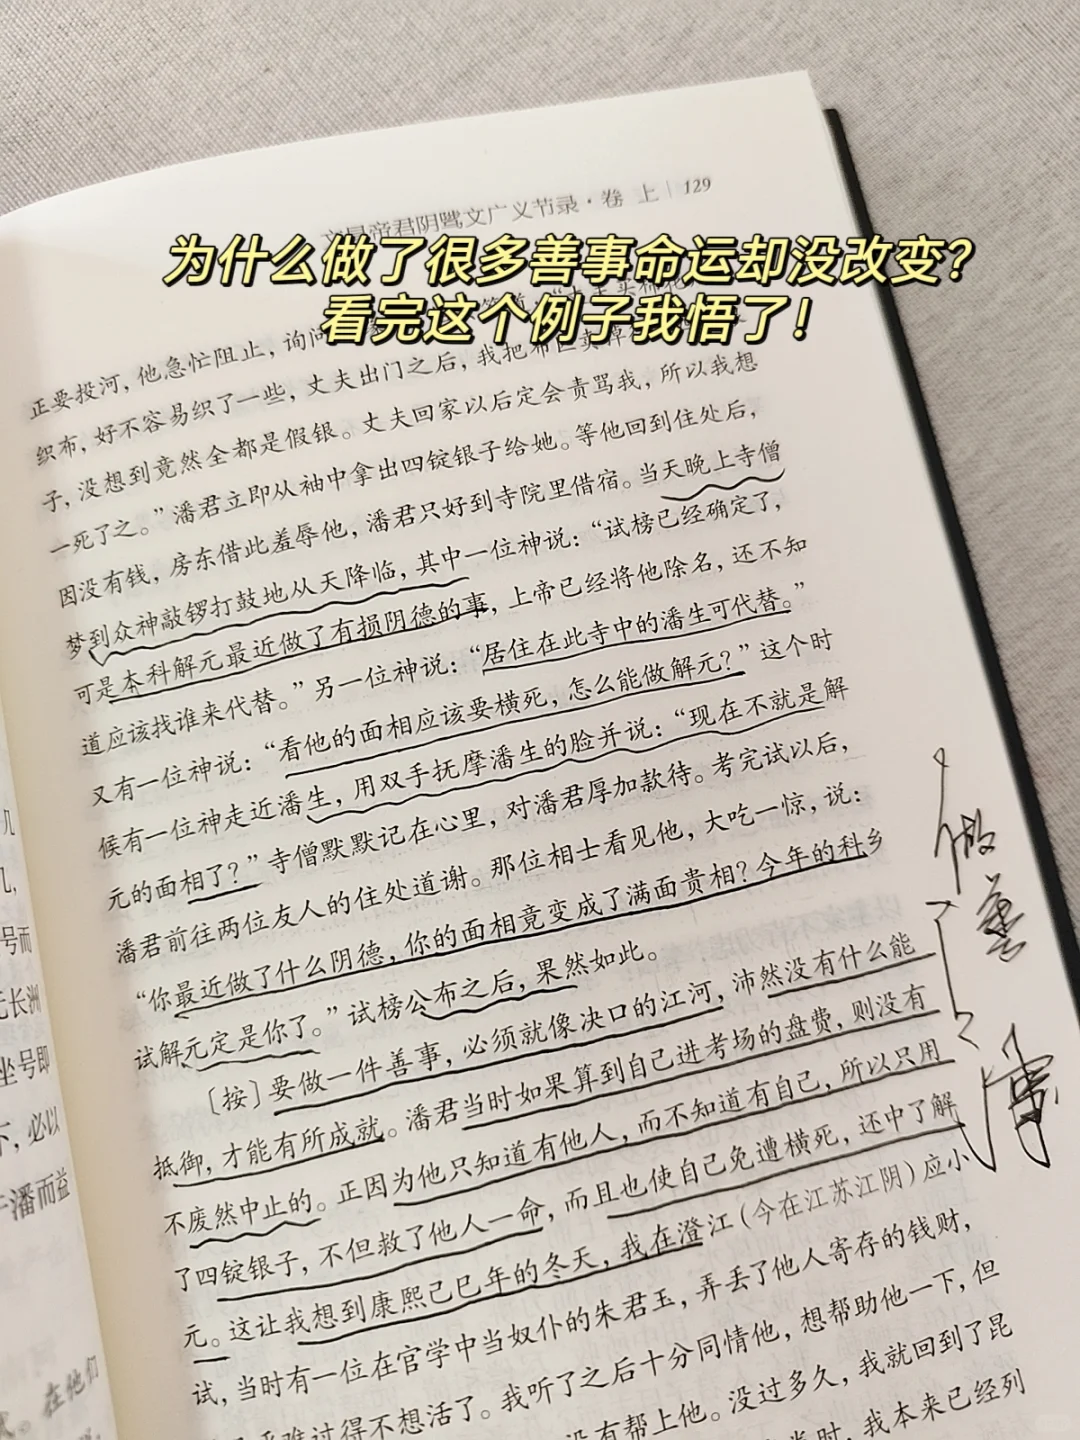 文昌帝君阴骘文广义节录·卷 上 | 129
为什么做了很多善事命运却没改变？
看完这个例子我悟了！
正要投河，他急忙阻止，询问
织布，好不容易织了一些，丈夫出门之后，我把布匹卖掉
子，没想到竟然全都是假银。丈夫回家以后定会责骂我，所以我想
一死了之。”潘君立即从袖中拿出四锭银子给她。等他回到住处后，
因没有钱，房东借此羞辱他，潘君只好到寺院里借宿。当天晚上寺僧
梦到众神敲锣打鼓地从天降临，其中一位神说：“试榜已经确定了，
可是本科解元最近做了有损阴德的事，上帝已经将他除名，还不知
道应该找谁来代替。”另一位神说：“居住在此寺中的潘生可代替。”
又有一位神说：“看他的面相应该要横死，怎么能做解元？”这个时
候有一位神走近潘生，用双手抚摩潘生的脸并说：“现在不就是解
元的面相了？”寺僧默默记在心里，对潘君厚加款待。考完试以后，
潘君前往两位友人的住处道谢。那位相士看见他，大吃一惊，说：
“你最近做了什么阴德，你的面相竟变成了满面贵相？今年的科乡
试解元定是你了。”试榜公布之后，果然如此。
［按］要做一件善事，必须就像决口的江河，沛然没有什么能
抵御，才能有所成就。潘君当时如果算到自己进考场的盘费，则没有
不废然中止的。正因为他只知道有他人，而不知道有自己，所以只用
了四锭银子，不但救了他人一命，而且也使自己免遭横死，还中了解
元。这让我想到康熙己巳年的冬天，我在澄江（今在江苏江阴）应小
试，当时有一位在官学中当奴仆的朱君玉，弄丢了他人寄存的钱财，
难过得不想活了。我听了之后十分同情他，想帮助他一下，但
没有帮上他。没过多久，我就回到了昆
我本来已经列
做
善
几
几，
号而
长洲
坐号即
下，必以
于潘而益
在他们